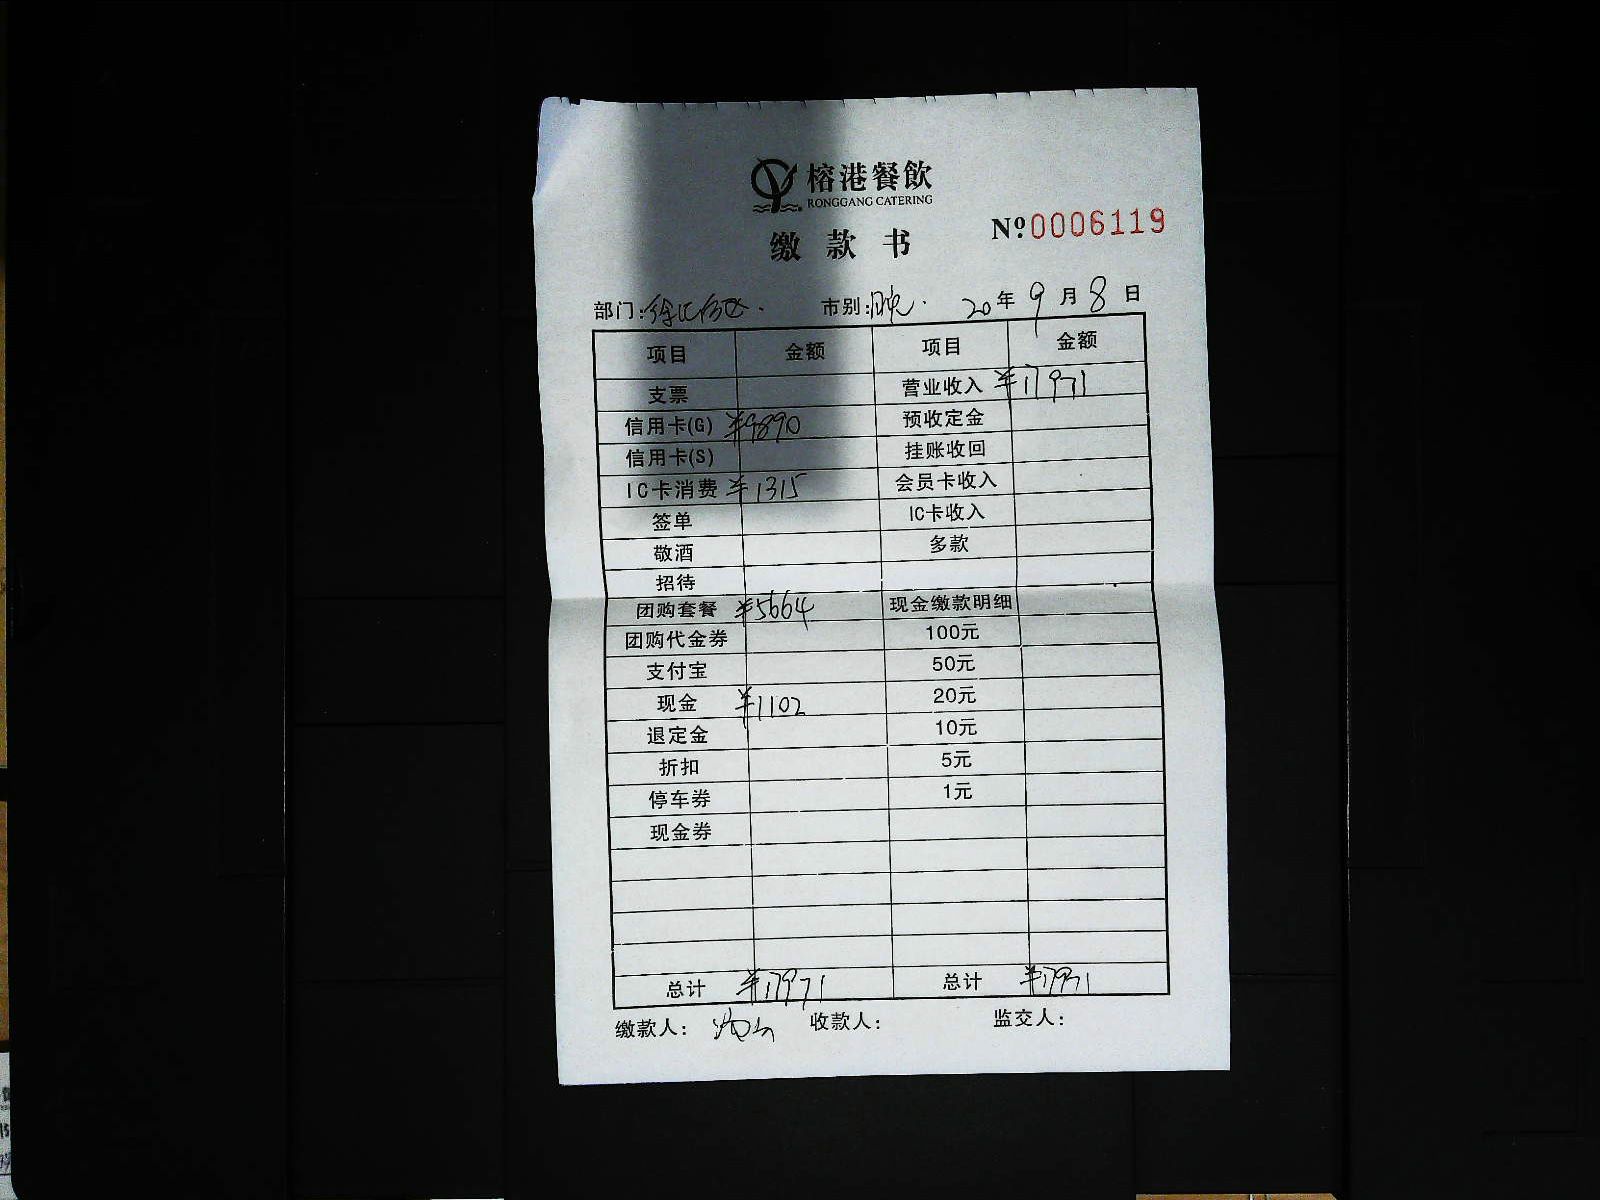 榕港餐飲
RONGGANG CATERING
缴款书
Nº0006119
部门: 市别:晚 20年9月8日
项目 金额 项目 金额
支票 营业收入 ¥17971
信用卡(G) ¥9890 预收定金
信用卡(S) 挂账收回
IC卡消费 ¥1315 会员卡收入
签单 IC卡收入
敬酒 多款
招待
团购套餐 ¥5664 现金缴款明细
团购代金券 100元
支付宝 50元
现金 ¥1102 20元
退定金 10元
折扣 5元
停车券 1元
现金券
总计 ¥17971 总计 ¥17971
缴款人: 收款人: 监交人: